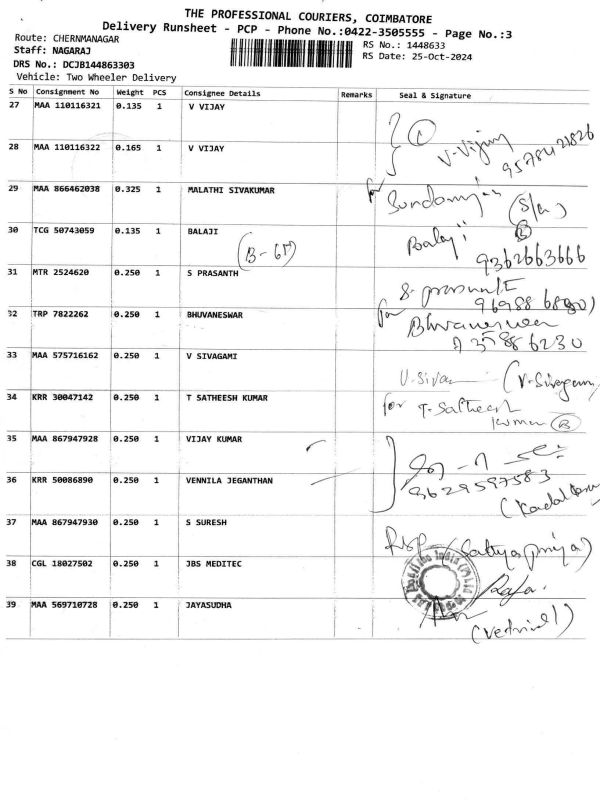 THE PROFESSIONAL COURIERS, COIMBATORE
Delivery Runsheet - PCP - Phone No.:0422-3505555 - Page No.:3
Route: CHERNMANAGAR
RS No.: 1448633
Staff: NAGARAJ
RS Date: 25-Oct-2024
DRS No.: DCJB144863303
Vehicle: Two Wheeler Delivery
S No Consignment No Weight PCS Consignee Details Remarks Seal & Signature
27 MAA 110116321 0.135 1 V VIJAY
V-Vijay
9578421826
28 MAA 110116322 0.165 1 V VIJAY
29 MAA 866462038 0.325 1 MALATHI SIVAKUMAR
for
(S/a)
30 TCG 50743059 0.135 1 BALAJI
Balaji B
9362663666
(B-6M)
31 MTR 2524620 0.250 1 S PRASANTH
S. prasanth
32 TRP 7822262 0.250 1 BHUVANESWAR
for Bhuvaneswar
33 MAA 575716162 0.250 1 V SIVAGAMI
(V-Sivagami)
34 KRR 30047142 0.250 1 T SATHEESH KUMAR
for T-Satheesh
Kumar B
35 MAA 867947928 0.250 1 VIJAY KUMAR
36 KRR 50086890 0.250 1 VENNILA JEGANTHAN
9629597583
37 MAA 867947930 0.250 1 S SURESH
(Sathyapriya)
38 CGL 18027502 0.250 1 JBS MEDITEC
39 MAA 569710728 0.250 1 JAYASUDHA
(Vetrivel)